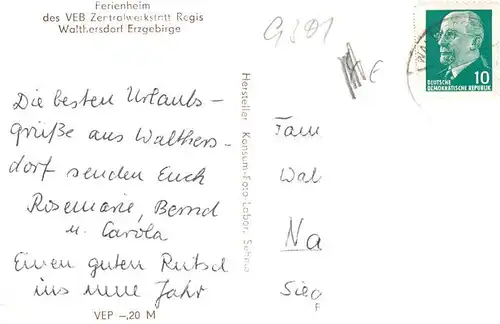 Ferienheim
des VEB Zentralwerkstatt Regis
Walthersdorf Erzgebirge
G391
E
10
DEUTSCHE
DEMOKRATISCHE REPUBLIK
Die besten Urlaubs-
grüße aus Walthers-
dorf senden Euch
Rosemarie, Bernd
u. Carola
Einen guten Rutsch
ins neue Jahr
Hersteller Konsum-Foto-Labor,
Fam
Wal
Na
Sieg
VEP -,20 M